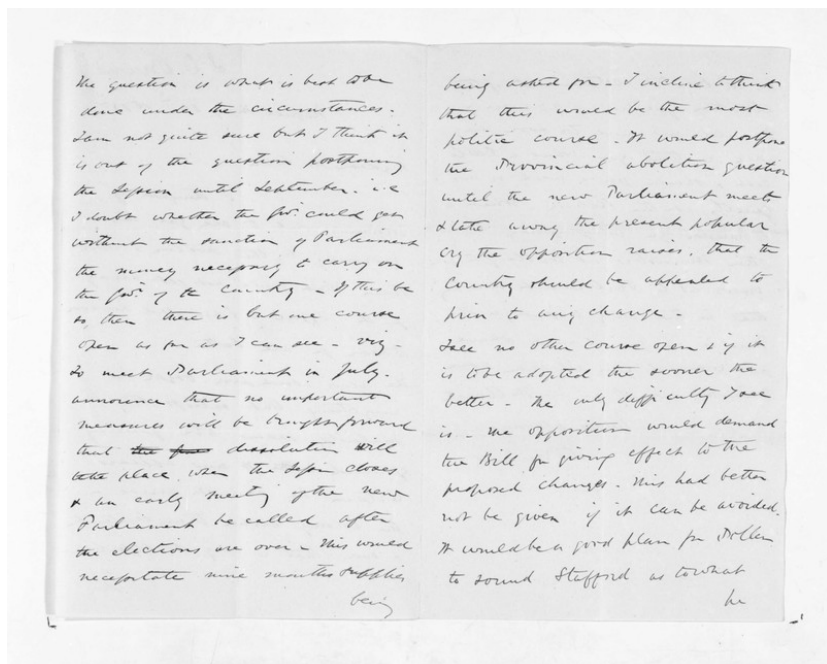 The question is what is best to be
done under the circumstances.
I am not quite sure but I think it
is out of the question postponing
the Session until September. i.e
I doubt whether the Govt. could get
without the sanction of Parliament
the money necessary to carry on
the Govt. of the Country – If this be
so, then there is but one course
open as far as I can see – viz –
to meet Parliament in July –
announce that no important
measures will be brought forward
that dissolution will
take place, when the Session closes
& an early meeting of the new
Parliament be called after
the elections are over – This would
necessitate nine months supplies
being
being asked for – I incline to think
that this would be the most
politic course – It would postpone
the Provincial abolition question
until the new Parliament meets
& take away the present popular
cry the opposition raises, that the
Country should be appealed to
prior to any change –
I see no other course open & if it
is to be adopted the sooner the
better – The only difficulty I see
is – the opposition would demand
the Bill for giving effect to the
proposed changes – This had better
not be given if it can be avoided.
It would be a good plan for
to sound Stafford as to what
he